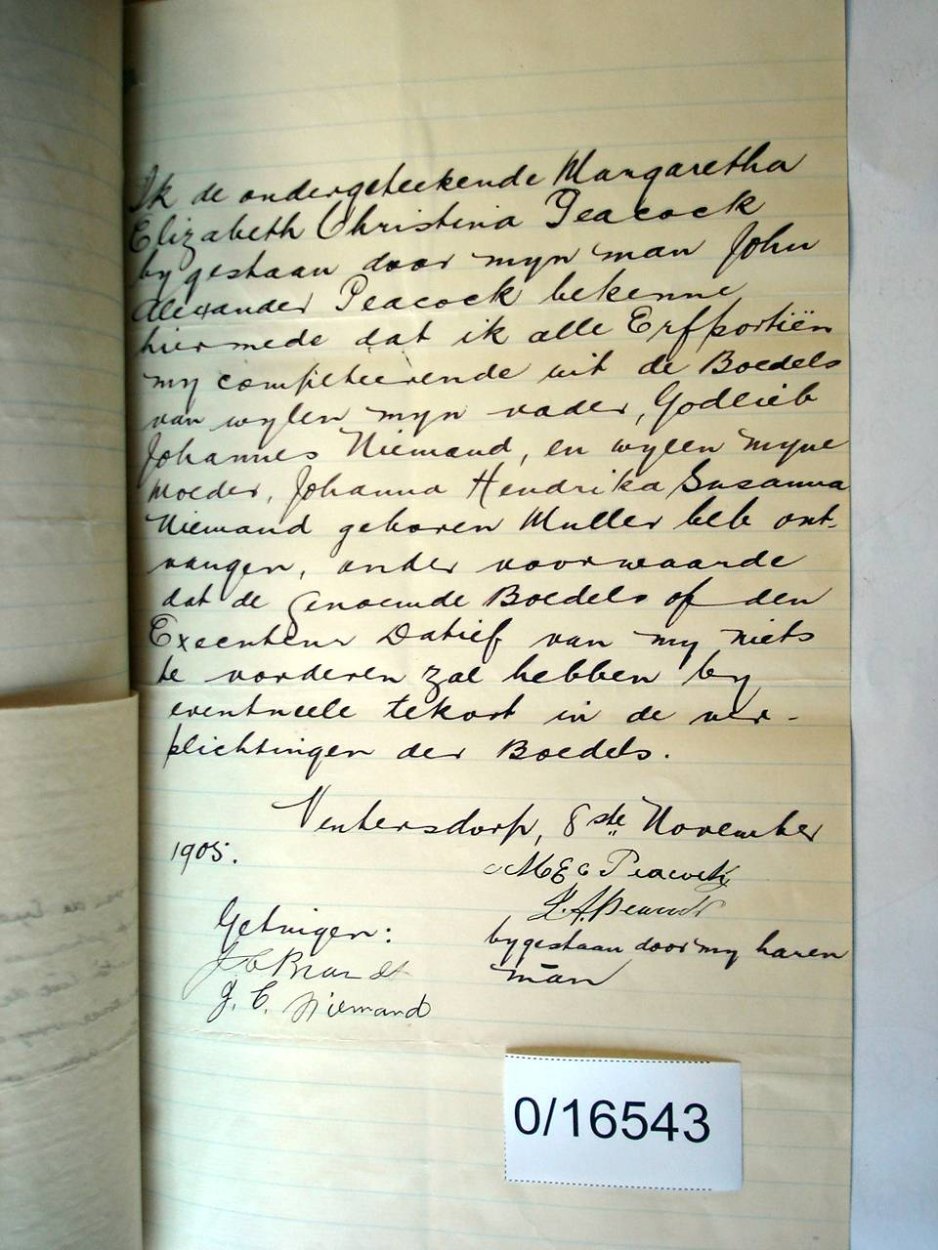 Ik de ondergeteekende Margaretha
Elizabeth Christina Peacock
bygestaan door myn man John
Alexander Peacock bekenne
hiermede dat ik alle Erfportiën
my competeerende uit de Boedels
van wylen myn vader, Godlieb
Johannes Niemand, en wylen myne
Moeder, Johanna Hendrika Susanna
Niemand geboren Muller heb ont-
vangen, onder voorwaarde
dat de genoemde Boedels of den
Executeur Datief van my niets
te vorderen zal hebben by
eventueele tekort in de ver-
plichtingen der Boedels.
Ventersdorp, 8ste November
1905.
M E C Peacock
Getuigen:
bygestaan door my haren
man
J C Brandt
G. C. Niemand
0/16543